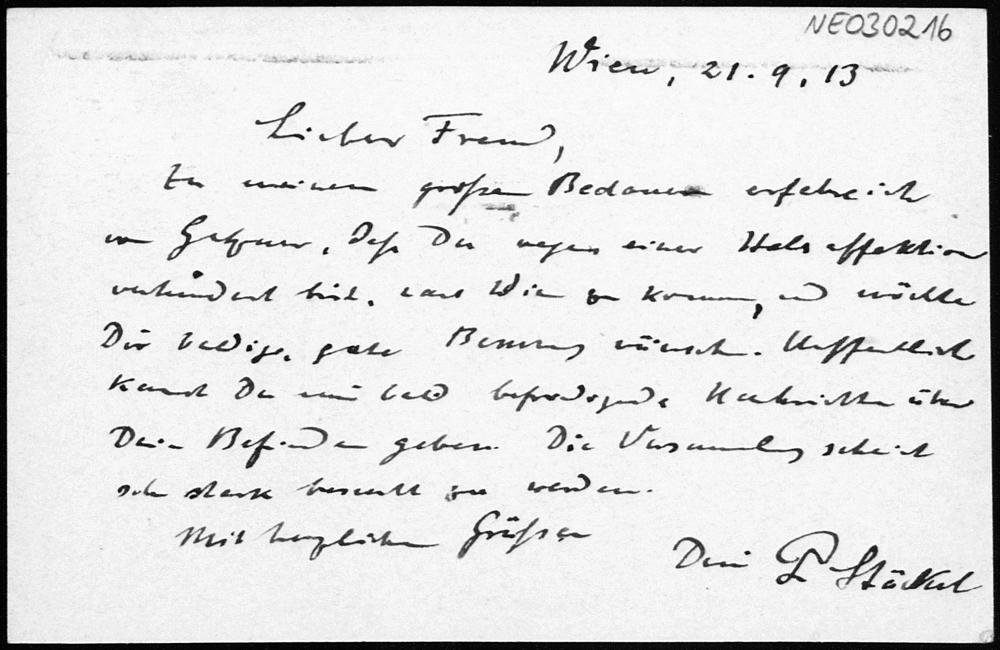 NEO30216
Wien, 21. 9. 13
Lieber Freund,
Zu meinem großen Bedauern erfahre ich
von Gutzmer, daß Du wegen einer Halsaffektion
verhindert bist, nach Wien zu kommen, und möchte
Dir baldige, gute Besserung wünschen. Hoffentlich
kannst Du mir bald befriedigende Nachrichten über
Dein Befinden geben. Die Versammlung scheint
sehr stark besucht zu werden.
Mit herzlichen Grüßen
Dein P Stäckel